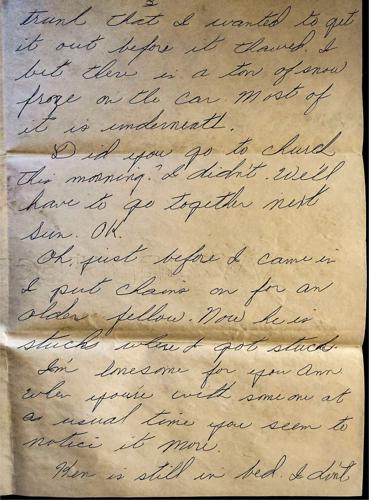 trunk that I wanted to get
it out before it thawed. I
bet there is a ton of snow
froze on the car. Most of
it is underneath.
Did you go to church
this morning? I didn't. We'll
have to go together next
Sun. OK.
Oh just before I came in
I put chains on for an
older fellow. Now he is
stuck where I got stuck.
I'm lonesome for you Ann
when you're with some one at
a usual time you seem to
notice it more.
is still in bed. I didn't